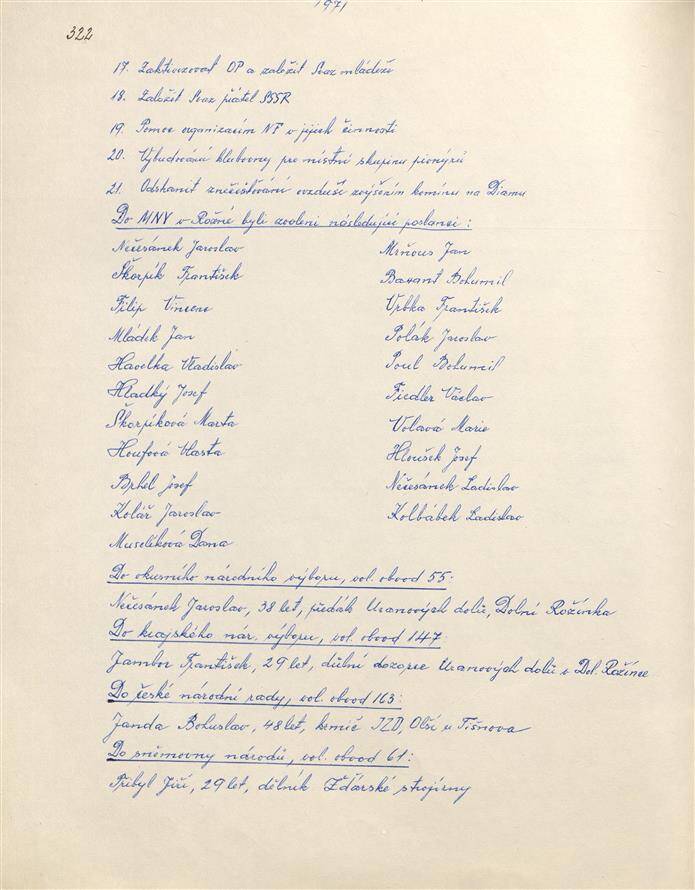 1971
322
17. Zaktivizovat OP a založit Svaz mládeže
18. Založit Svaz přátel SSSR
19. Pomoc organizacím NF v jejich činnosti
20. Vybudování klubovny pro místní skupinu pionýrů
21. Odstranit znečišťování ovzduší zvýšením komínu na Diamu
Do MNV v Rožné byli zvoleni následující poslanci:
Neřesánek Jaroslav
Mrňous Jan
Škorpík František
Bažant Bohumil
Filip Vincenc
Vrbka František
Mládek Jan
Polák Jaroslav
Havelka Vladislav
Poul Bohumil
Hladký Josef
Fiedler Václav
Škorpíková Marta
Volavá Marie
Houfová Vlasta
Hloušek Josef
Brhel Josef
Neřesánek Ladislav
Kolář Jaroslav
Kolbábek Ladislav
Muselíková Dana
Do okresního národního výboru, vol. obvod 55.
Neřesánek Jaroslav, 38 let, předák Uranových dolů, Dolní Rožínka
Do krajského nár. výboru, vol. obvod 147
Jambor František, 29 let, důlní dozorce Uranových dolů v Dol. Rožínce
Do české národní rady, vol. obvod 163:
Janda Bohuslav, 48 let, JZD, Olší u Tišnova
Do sněmovny národů, vol. obvod 61:
Přibyl Jiří, 29 let, dělník Žďárské strojírny